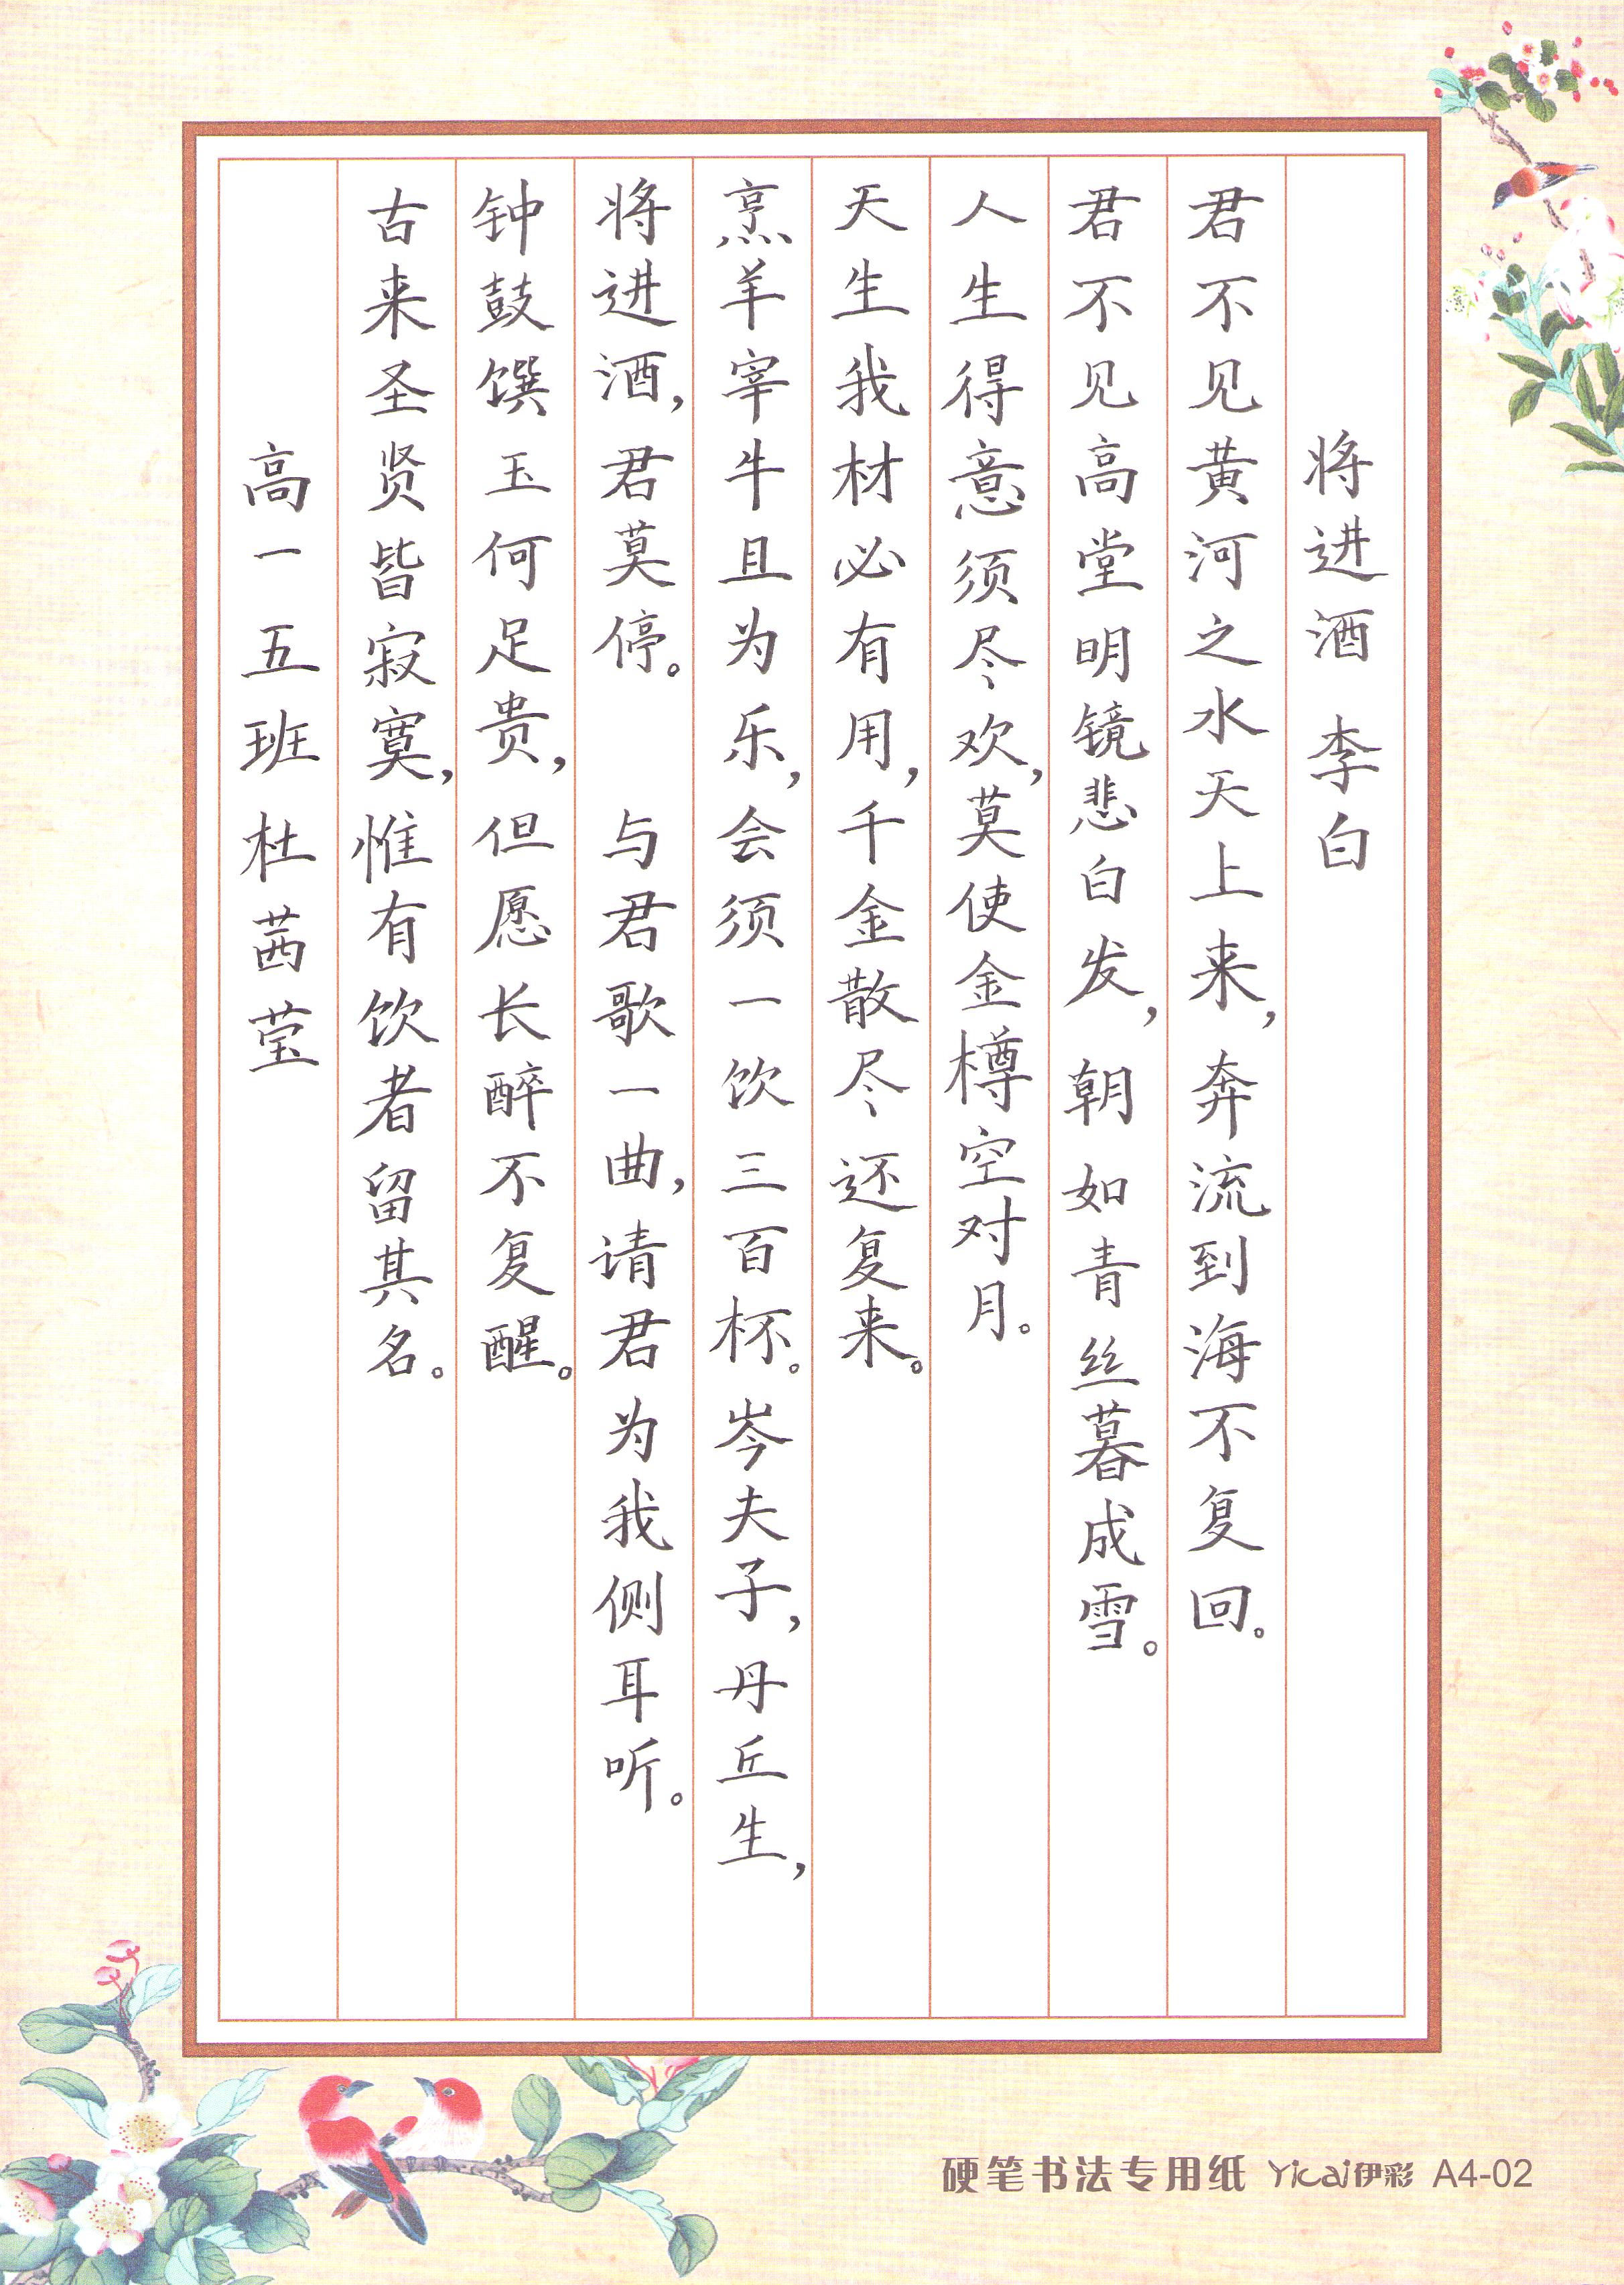 将进酒 李白
君不见黄河之水天上来，奔流到海不复回。
君不见高堂明镜悲白发，朝如青丝暮成雪。
人生得意须尽欢，莫使金樽空对月。
天生我材必有用，千金散尽还复来。
烹羊宰牛且为乐，会须一饮三百杯。岑夫子，丹丘生，
将进酒，君莫停。 与君歌一曲，请君为我侧耳听。
钟鼓馔玉何足贵，但愿长醉不复醒。
古来圣贤皆寂寞，惟有饮者留其名。
高一五班杜茜莹
硬笔书法专用纸 Yicai伊彩 A4-02